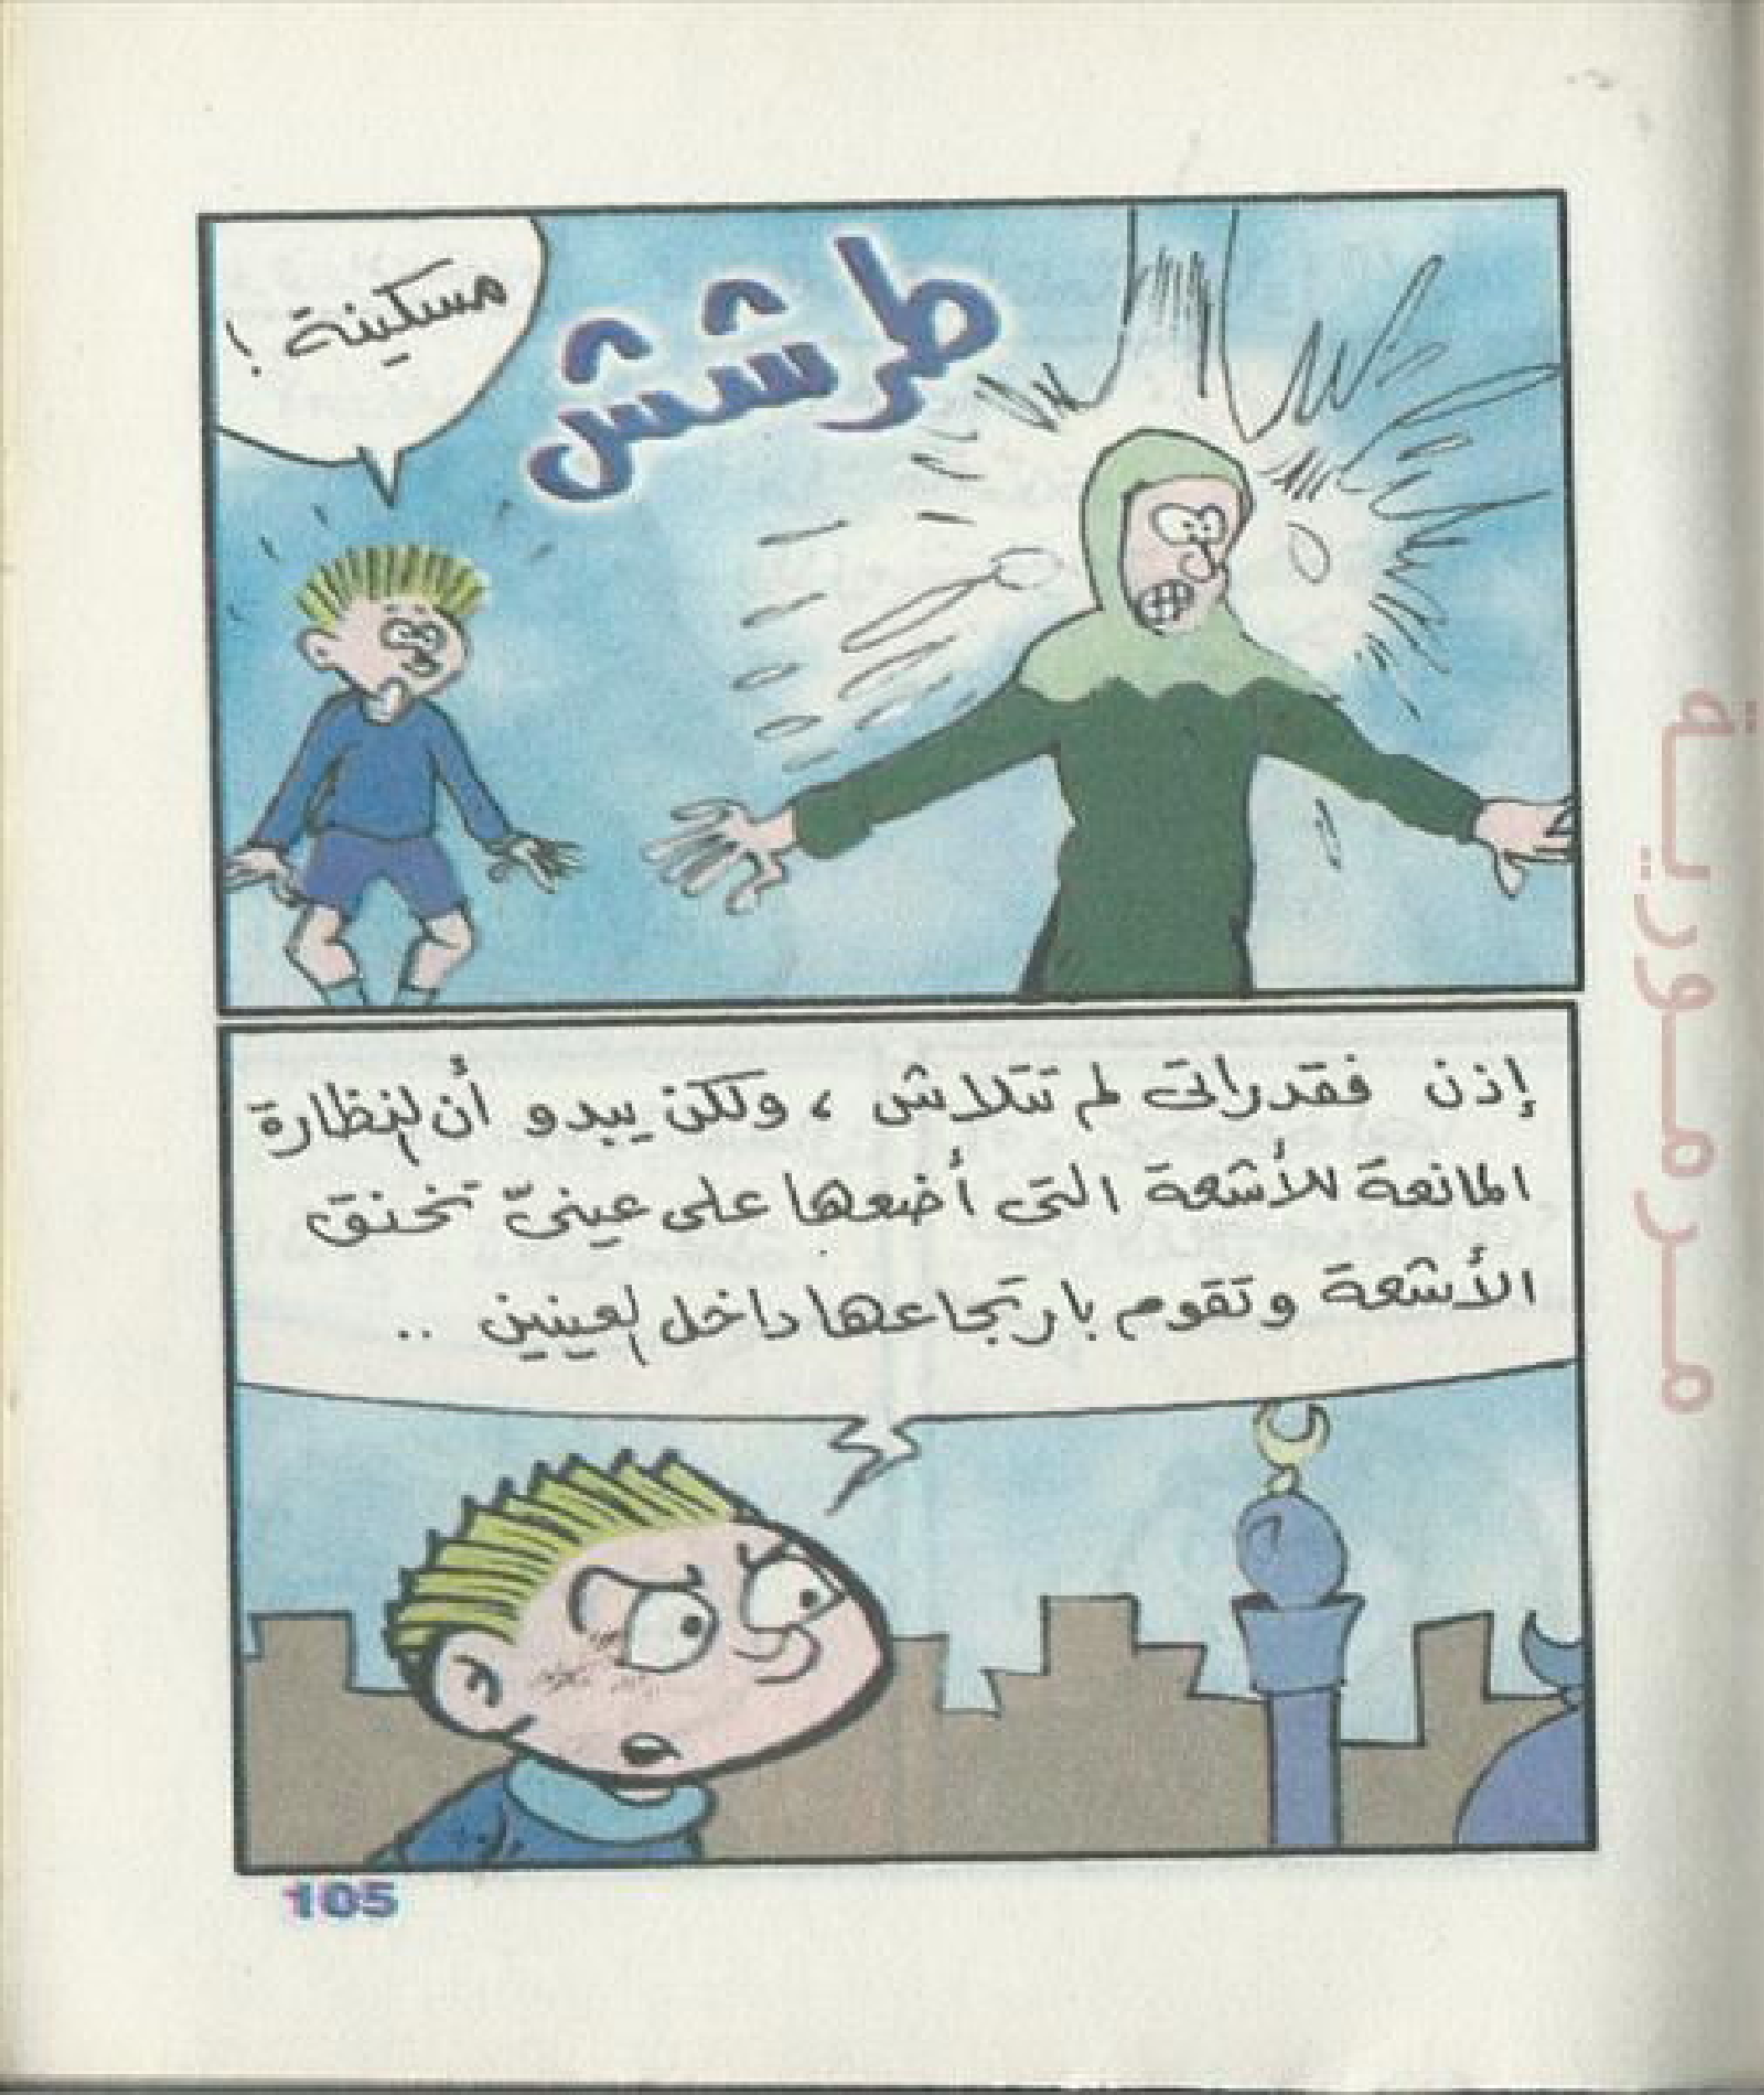 طرشش
مسكينة !
إذن فقدراتى لم تتلاش ، ولكن يبدو أن النظارة
المانعة للأشعة التى أضعها على عينىّ تخنق
الأشعة وتقوم بارتجاعها داخل العينين ..
105
مرمورية